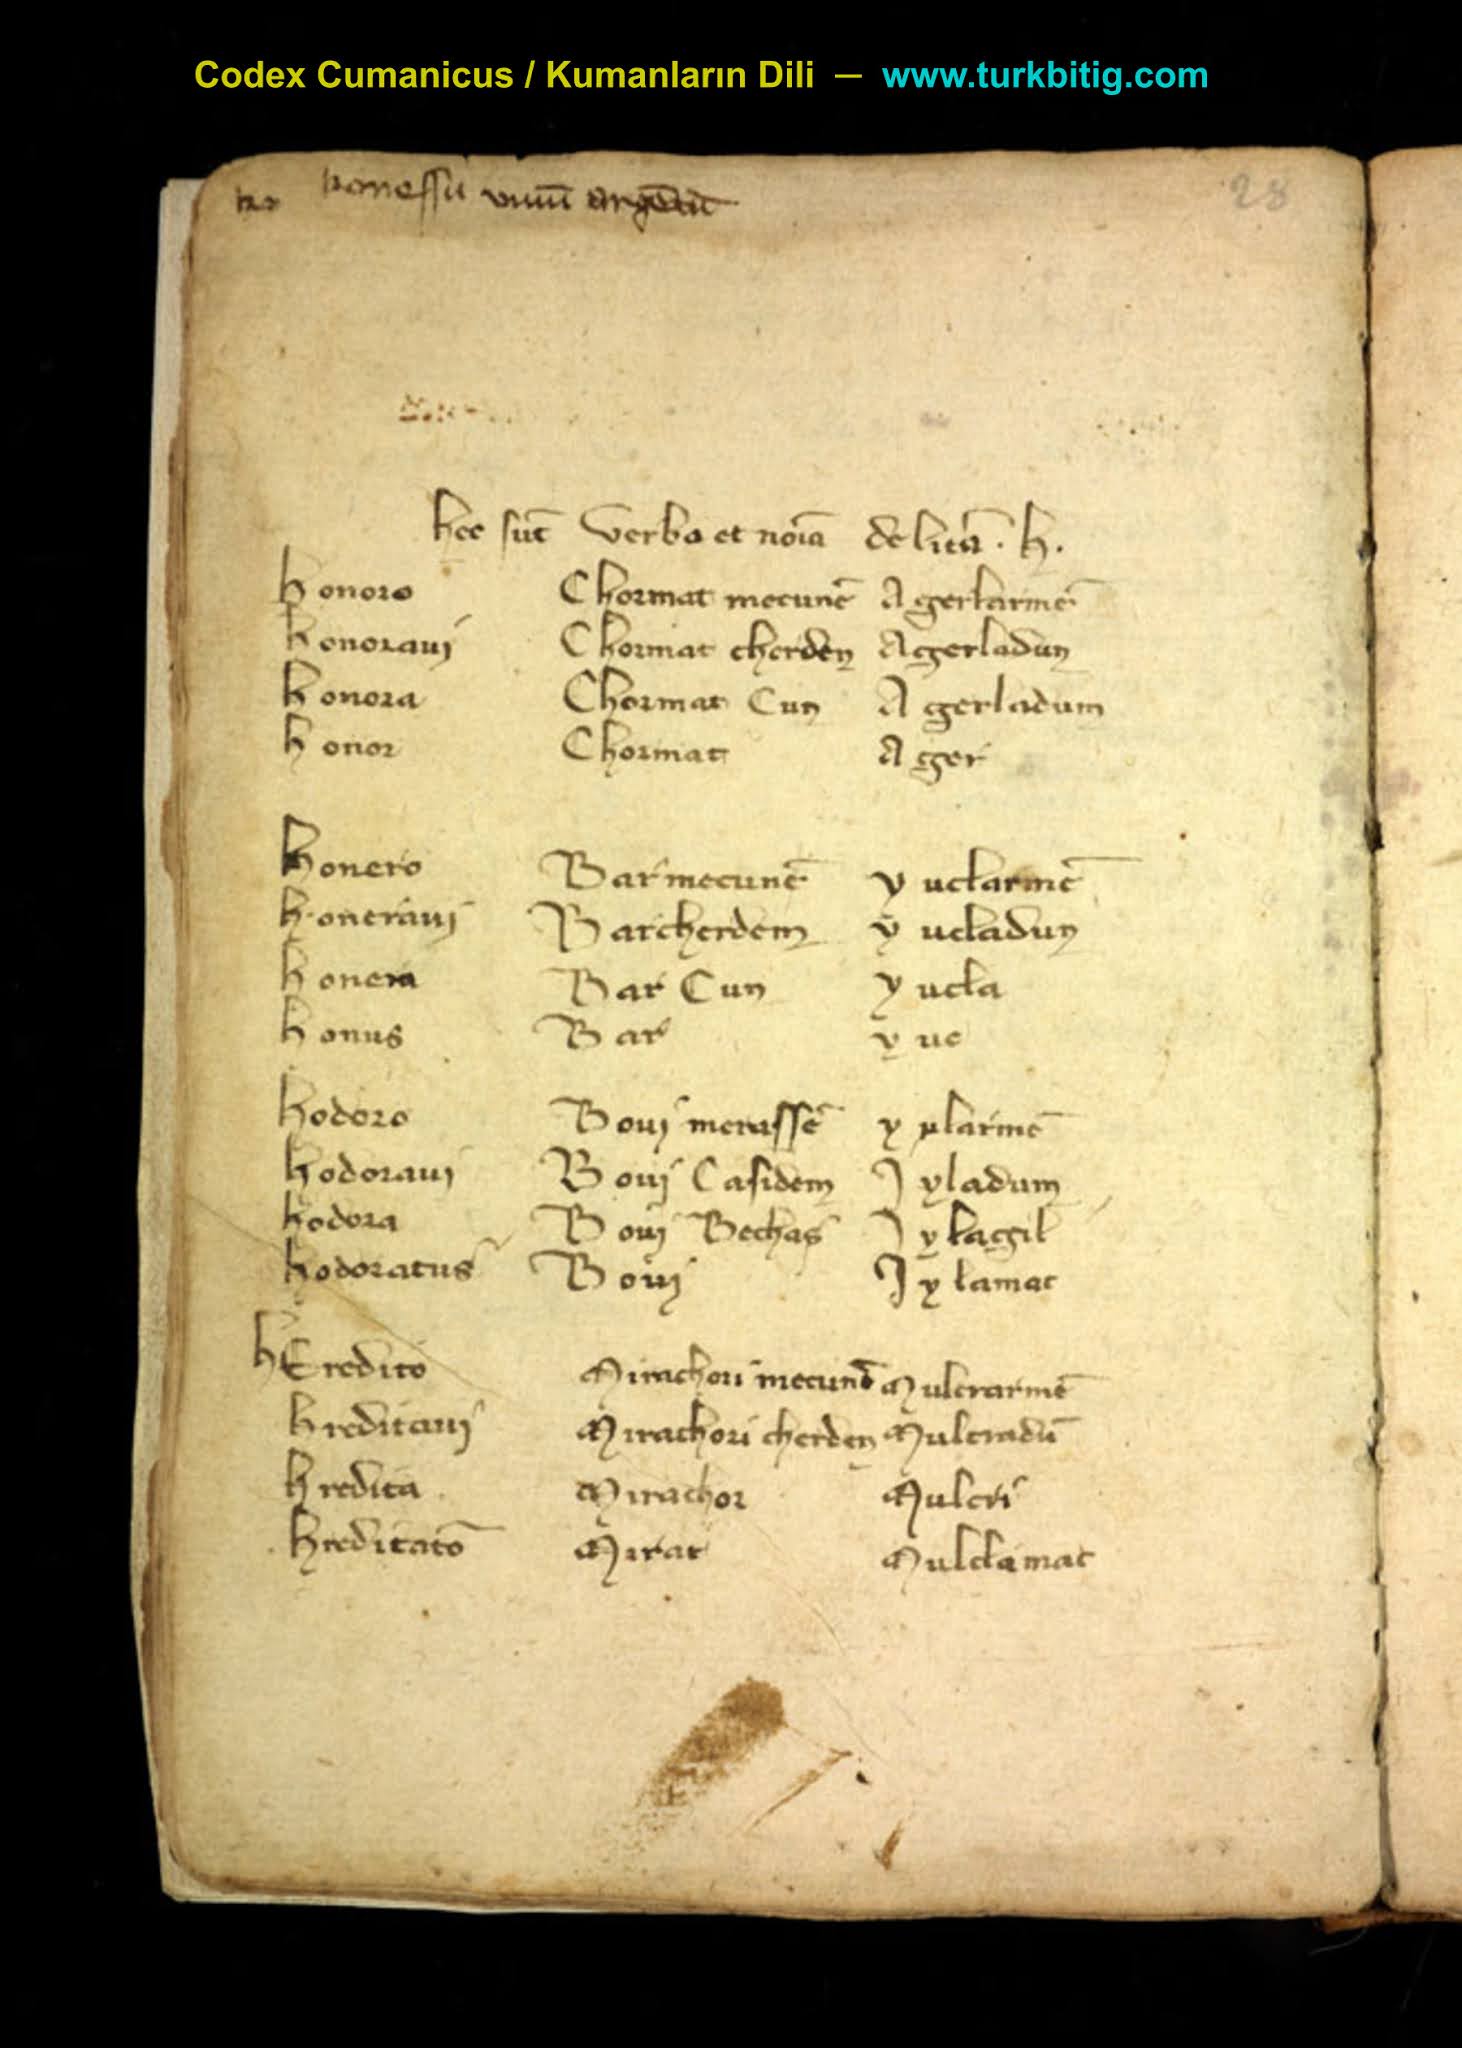 Codex Cumanicus / Kumanların Dili — www.turkbitig.com
28
hec sūt verba et noīa de litā . h.
honoro Chormat mecunē Agerlarmē
honoraui Chormat cherden Agerladun
honora Chormat Cun Agerladum
honor Chormat Ager
honero Bar mecunē yuclarmē
honeraui Barcherdem yucladun
honera Bar Cun yucla
honus Bar yuc
hodoro Boui merassē yylarmē
hodoraui Boui Casidem Jyladum
hodora Boui Bechas Jylagil
hodoratus Boui Jylamac
hEredito Mirachori mecunē Mulcrarmē
hreditaui Mirachori cherden Mulcradū
hredita Mirachor Mulcri
hreditatō Mirat Mulclamac